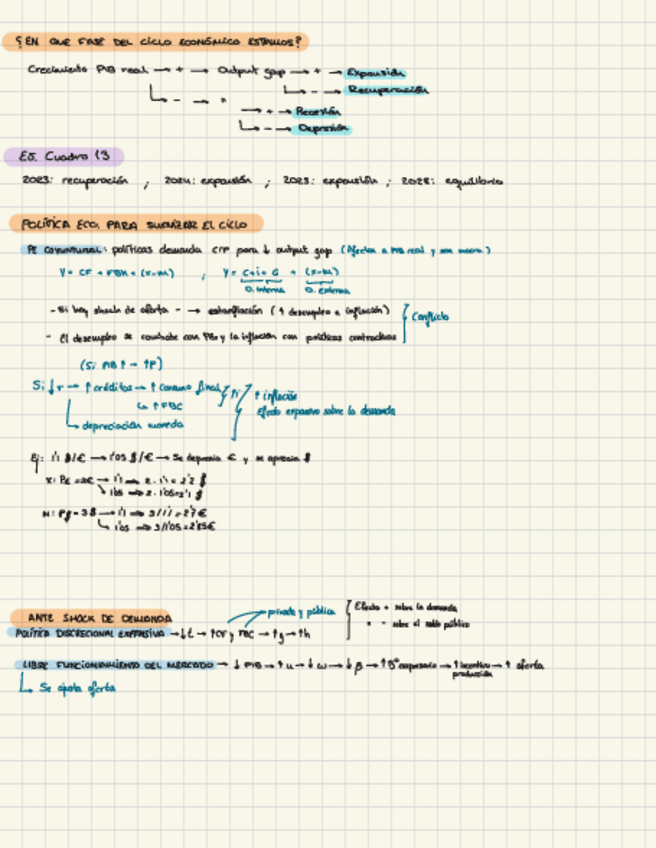 ¿EN QUE FASE DEL CICLO ECONÓMICO ESTAMOS?
Crecimiento PIB real → + → Output gap → + → Expansión
→ - → Recuperación
→ - → " → + → Recesión
→ - → Depresión
EJ. Cuadro 13
2023: recuperación ; 2024: expansión ; 2025: expansión ; 2028: equilibrio
POLÍTICA ECO. PARA SUAVIZAR EL CICLO
PE COYUNTURAL: políticas demanda CTP para ↓ output gap (Afectan a PIB real y
Y = CF + FBK + (X-M) ; Y = C+i+G + (X-M)
D. interna D. externa
- Si hay shock de oferta - → estanflación (↑ desempleo e inflación)
- El desempleo se combate con PEs y la inflación con políticas contractivas
Conflicto
(Si PIB ↑ → ↑P)
Si ↓r → ↑ créditos → ↑ consumo final
↳ ↑ FBC
↑ inflación
Efecto expansivo sobre la demanda
↳ depreciación moneda
Ej: 1'1 $/€ → 1'05 $/€ → Se deprecia € y se aprecia $
X: P€ = 2€ → 1'1 → 2 · 1'1 = 2'2 $
1'05 → 2 · 1'05 = 2'1 $
M: P$ = 3$ → 1'1 → 3/1'1 = 2'7€
↳ 1'05 → 3/1'05 = 2'85€
ANTE SHOCK DE DEMANDA
privada y pública
Efecto + sobre la demanda
" - sobre el saldo público
POLÍTICA DISCRECIONAL EXPANSIVA → ↓t → ↑CF y FBC → ↑y → ↑h
LIBRE FUNCIONAMIENTO DEL MERCADO → ↓ PIB → ↑u → ↓ω → ↓β → ↑Bº empresario → ↑ incentivo producción → ↑ oferta
↳ Se ajusta oferta